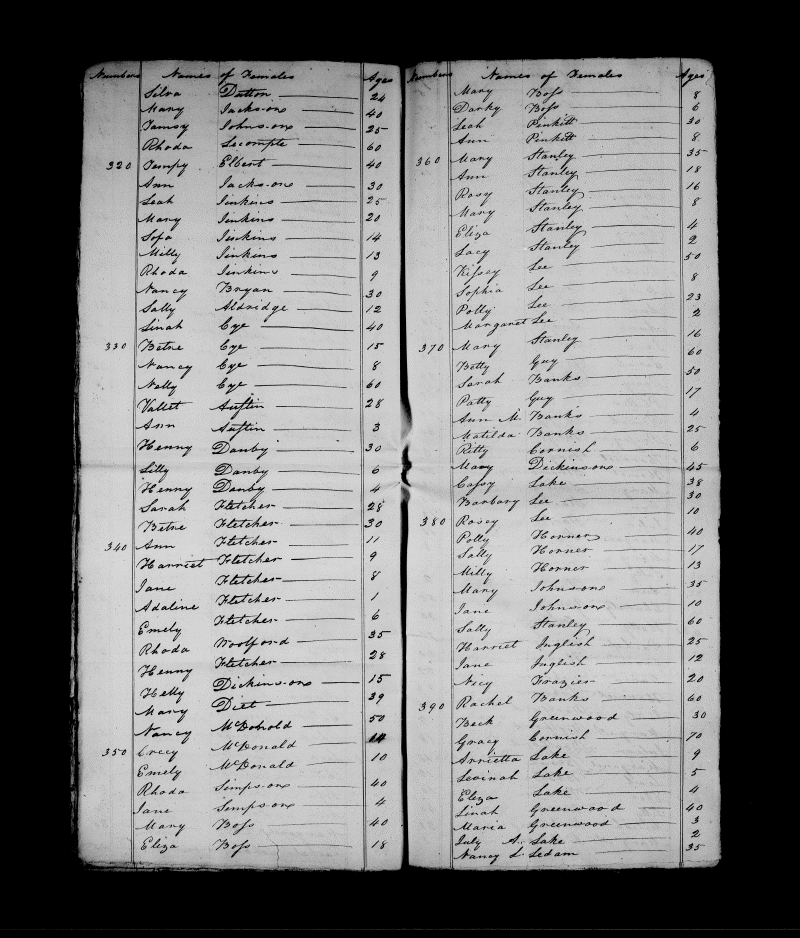 Numbers Names of Females Ages
Silva Dutton 24
Mary Jackson 40
Tamsy Johnson 25
Rhoda Lecompte 60
320 Tempy Elbert 40
Ann Jackson 30
Leah Jenkins 25
Mary Jenkins 20
Sofa Jenkins 14
Milly Jenkins 13
Rhoda Jenkins 9
Nancy Bryan 30
Sally Aldridge 12
Linah Cye 40
330 Betse Cye 15
Nancy Cye 8
Nelly Cye 60
Vallet Austin 28
Ann Austin 3
Henny Danby 30
Lilly Danby 6
Henny Danby 4
Sarah Fletcher 28
Betse Fletcher 30
340 Ann Fletcher 11
Harriet Fletcher 9
Jane Fletcher 8
Adaline Fletcher 1
Emely Fletcher 6
Rhoda Woolford 35
Henny Fletcher 28
Hetty Dickinson 15
Mary Diet 39
Nancy McDonold 50
350 Crecy McDonald 14
Emely McDonald 10
Rhoda Simpson 40
Jane Simpson 4
Mary Boss 40
Eliza Boss 18
Numbers Names of Females Ages
Mary Boss 8
Darky Boss 6
Leah Pinkett 30
Ann Pinkett 8
360 Mary Stanley 35
Ann Stanley 18
Rosy Stanley 16
Mary Stanley 8
Eliza Stanley 4
Lacy Stanley 2
Kissey Lee 50
Sophia Lee 8
Polly Lee 23
Margaret Lee 2
370 Mary Stanley 16
Betty Guy 60
Sarah Banks 50
Patty Guy 17
Ann M. Banks 4
Matilda Banks 25
Ritty Cornish 6
Mary Dickinson 45
Cassy Lake 38
Barbary Lee 30
380 Rosey Lee 10
Polly Horner 40
Sally Horner 17
Milly Horner 13
Mary Johnson 35
Jane Johnson 10
Sally Stanley 60
Harriet Inglish 25
Jane Inglish 12
Nicy Frazier 20
390 Rachel Banks 60
Beck Greenwood 30
Gracy Cornish 70
Arrietta Lake 9
Levinah Lake 5
Eliza Lake 4
Linah Greenwood 40
Maria Greenwood 3
July A. Lake 2
Nancy L. Ledam 35